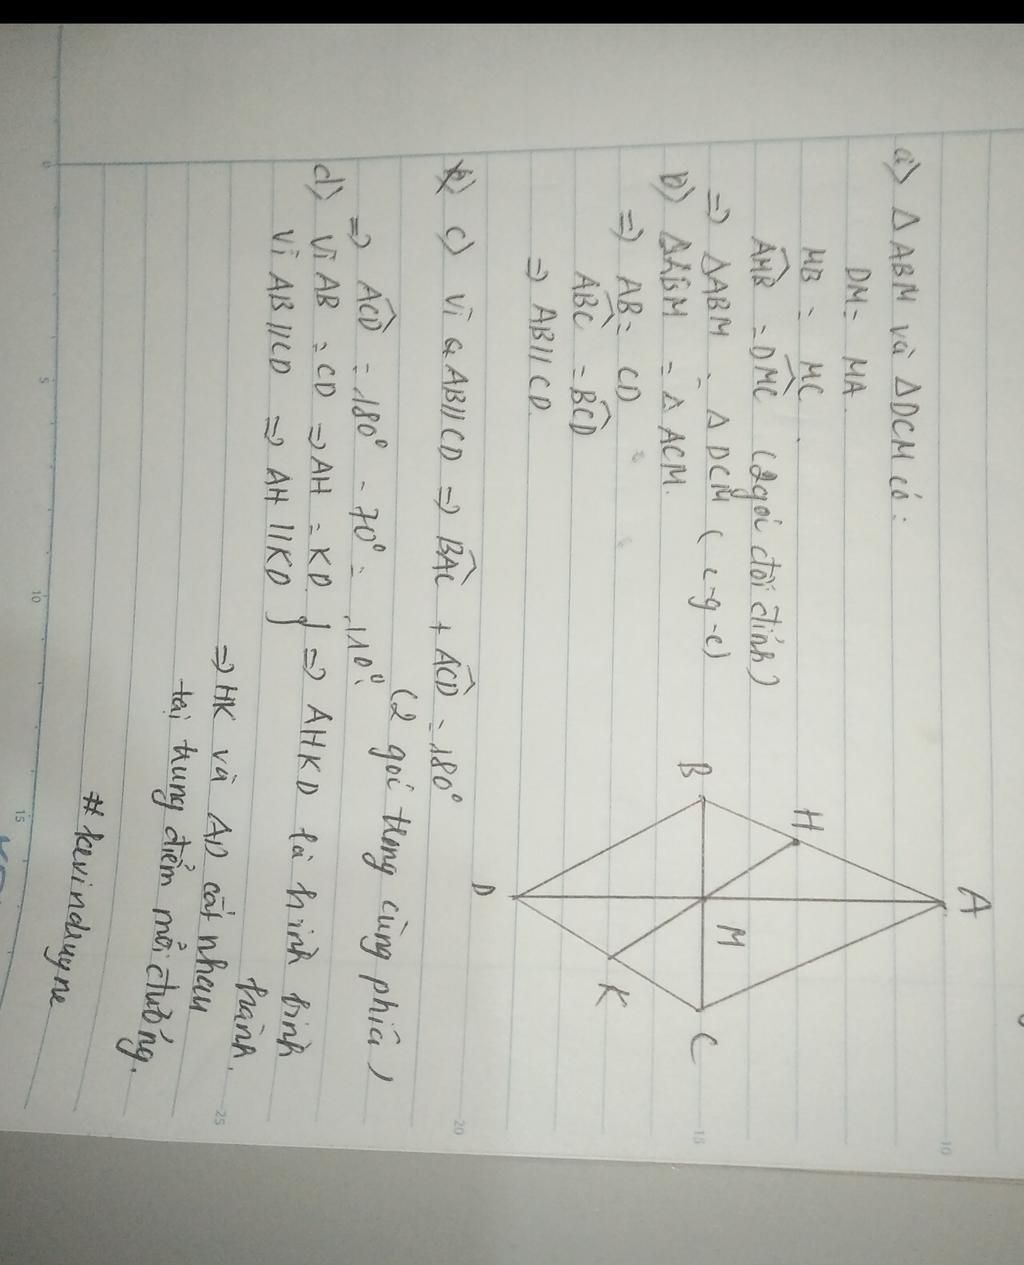 a) Δ ABM và Δ DCM có:
DM = MA.
MB = MC.
AMB = DMC (2 gói đối đỉnh)
=> Δ ABM = Δ DCM (c-g-c)
b) ΔABM = Δ ACM.
=> AB = CD
ABC = BCD
=> AB // CD.
c) Vì a AB // CD => BAC + ACD = 180°
(2 gói trong cùng phía)
=> ACD = 180° - 70° = 110°.
d) Vì AB = CD => AH = KD } => AHKD là hình bình
hành.
Vì AB // CD => AH // KD }
=> HK và AD cắt nhau
tại trung điểm mỗi đường.
# kevinduyne
A
H
B
M
C
K
D
0
5
10
15
10
15
20
25